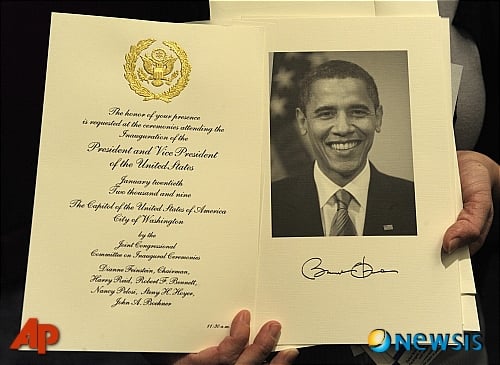 The honor of your presence
is requested at the ceremonies attending the
Inauguration of the
President and Vice President
of the United States
January twentieth
Two thousand and nine
The Capitol of the United States of America
City of Washington
by the
Joint Congressional
Committee on Inaugural Ceremonies
Dianne Feinstein, Chairman,
Harry Reid, Robert F. Bennett,
Nancy Pelosi, Steny H. Hoyer,
John A. Boehner
11:30 a.m.
AP
newsis